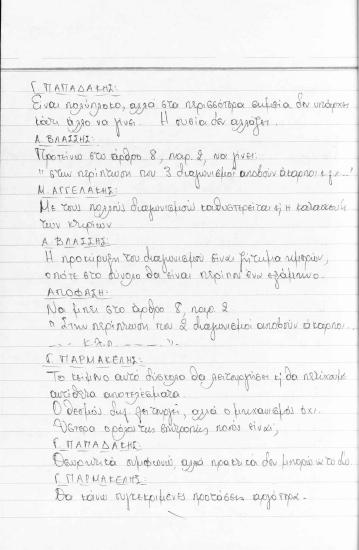 Γ. ΠΑΠΑΔΑΚΗΣ:
Είναι πολύπλοκο, αλλά στα περισσότερα σημεία δεν υπάρχει
κάτι άλλο να γίνει. Η ουσία δεν αλλάζει.
Α. ΒΛΑΣΣΗΣ:
Προτείνω στο άρθρο 8, παρ. 2, να γίνει:
"στην περίπτωση που 3 διαγωνισμοί αποβούν άκαρποι κ.γ...."
Μ. ΑΓΓΕΛΑΚΗΣ:
Με τους πολλούς διαγωνισμούς καθυστερείται κ' η κατασκευή
των κτηρίων
Α. ΒΛΑΣΣΗΣ:
Η προκύρηξη του διαγωνισμού είναι ζήτημα ημερών,
οπότε στο σύνολο θα είναι περίπου ένα εξάμηνο.
ΑΠΟΦΑΣΗ:
Να μπει στο άρθρο 8, παρ. 2
"Στην περίπτωση που 2 διαγωνισμοί αποβούν άκαρποι...
..... κ.λ.π. ..... ".
Γ. ΠΑΡΜΑΚΕΛΗΣ:
Το κείμενο αυτό δύσκολα θα λειτουργήσει κ' θα πετύχουμε
αντίθετα αποτελέσματα.
Ο θεσμός λειτουργεί, αλλά ο μηχανισμός όχι.
Ύστερα ο ρόλος της επιτροπής ποιος είναι;
Γ. ΠΑΠΑΔΑΚΗΣ:
Θεωρητικά συμφωνώ, αλλά πρακτικά δεν μπορώ να το δω.
Γ. ΠΑΡΜΑΚΕΛΗΣ:
Θα κάνω συγκεκριμένες προτάσεις αργότερα.